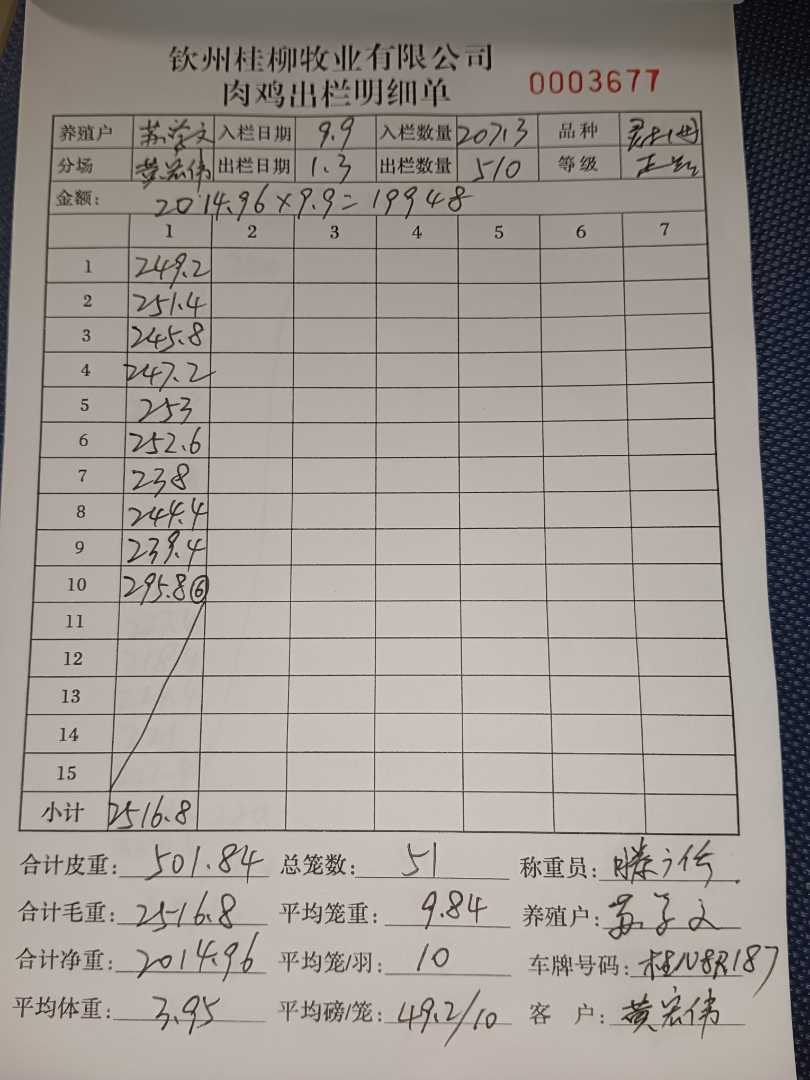 钦州桂柳牧业有限公司
肉鸡出栏明细单 0003677
养殖户 苏学文 入栏日期 9.9 入栏数量 20713 品种
分场 黄宏伟 出栏日期 1.3 出栏数量 510 等级
金额: 2014.96×9.9=19948
1 2 3 4 5 6 7
1 249.2
2 251.4
3 245.8
4 247.2
5 253
6 252.6
7 238
8 244.4
9 239.4
10 295.8⑥
11
12
13
14
15
小计 2516.8
合计皮重: 501.84 总笼数: 51 称重员:
合计毛重: 2516.8 平均笼重: 9.84 养殖户: 苏学文
合计净重: 2014.96 平均笼/羽: 10 车牌号码: 桂N8R187
平均体重: 3.95 平均磅/笼: 49.2/10 客 户: 黄宏伟